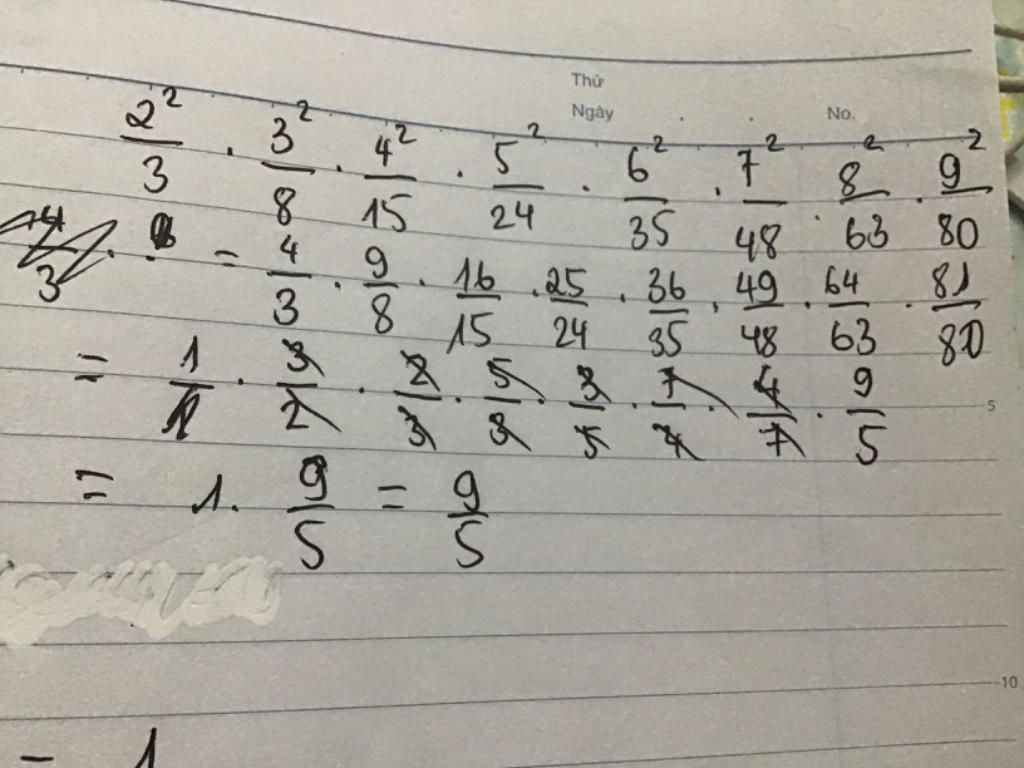 Thứ
Ngày No.
2²/3 . 3²/8 . 4²/15 . 5²/24 . 6²/35 . 7²/48 . 8²/63 . 9²/80
= 4/3 . 9/8 . 16/15 . 25/24 . 36/35 . 49/48 . 64/63 . 81/80
= 1/1 . 3/2 . 2/3 . 5/3 . 3/5 . 7/4 . 4/7 . 9/5
5
= 1. 9/5 = 9/5
10
= 1